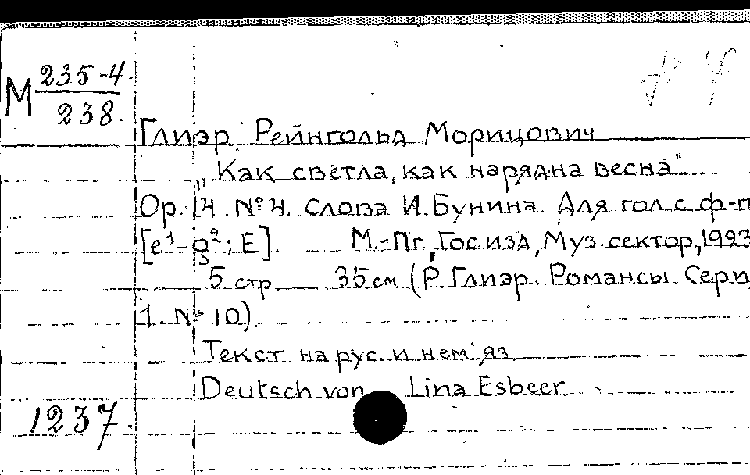 М 235-4
238.
Глиэр Рейнгольд Морицович
„Как светла, как нарядна весна"
Op. 14 № 4. Слова И. Бунина. Для гол. с ф-п
[e¹-g²; E]. М.-Пг, Госизд, Муз. сектор, 1923
5 стр 35 см (Р. Глиэр. Романсы. Серия
1. № 10)
Текст на рус. и нем. яз
Deutsch von Lina Esbeer
1237.